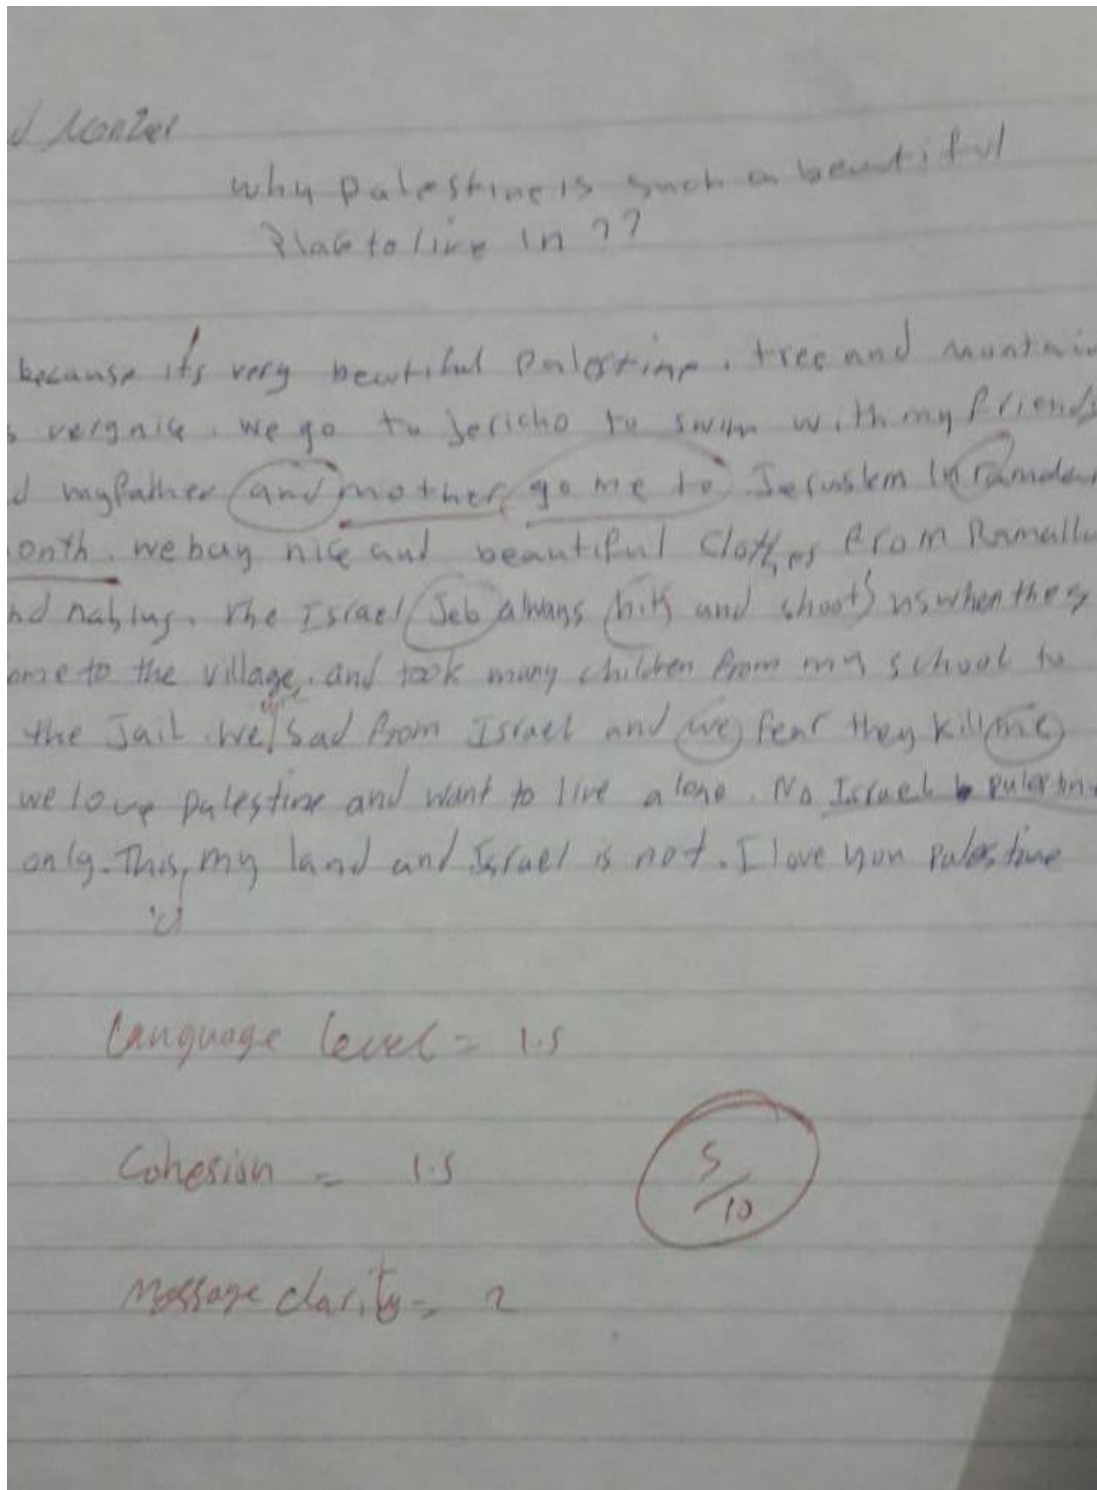 why palestine is such a beautiful
Place to live in ??
because it's very beautiful palestine. tree and
nice. we go to Jericho to swim with my friends
my father and mother go me to Jeruslem in
onth. we buy nice and beautiful Clothes from
The Israel Jeb always hits and shoots us when they
ome to the village. and took many children from my school to
the Jail. We are sad from Israel and we fear they kill me
we love palestine and want to live alone. No Israel
only. This, my land and Israel is not. I love you palestine
Language level = 1.5
Cohesion = 1.5
5/10
Message clarity = 2